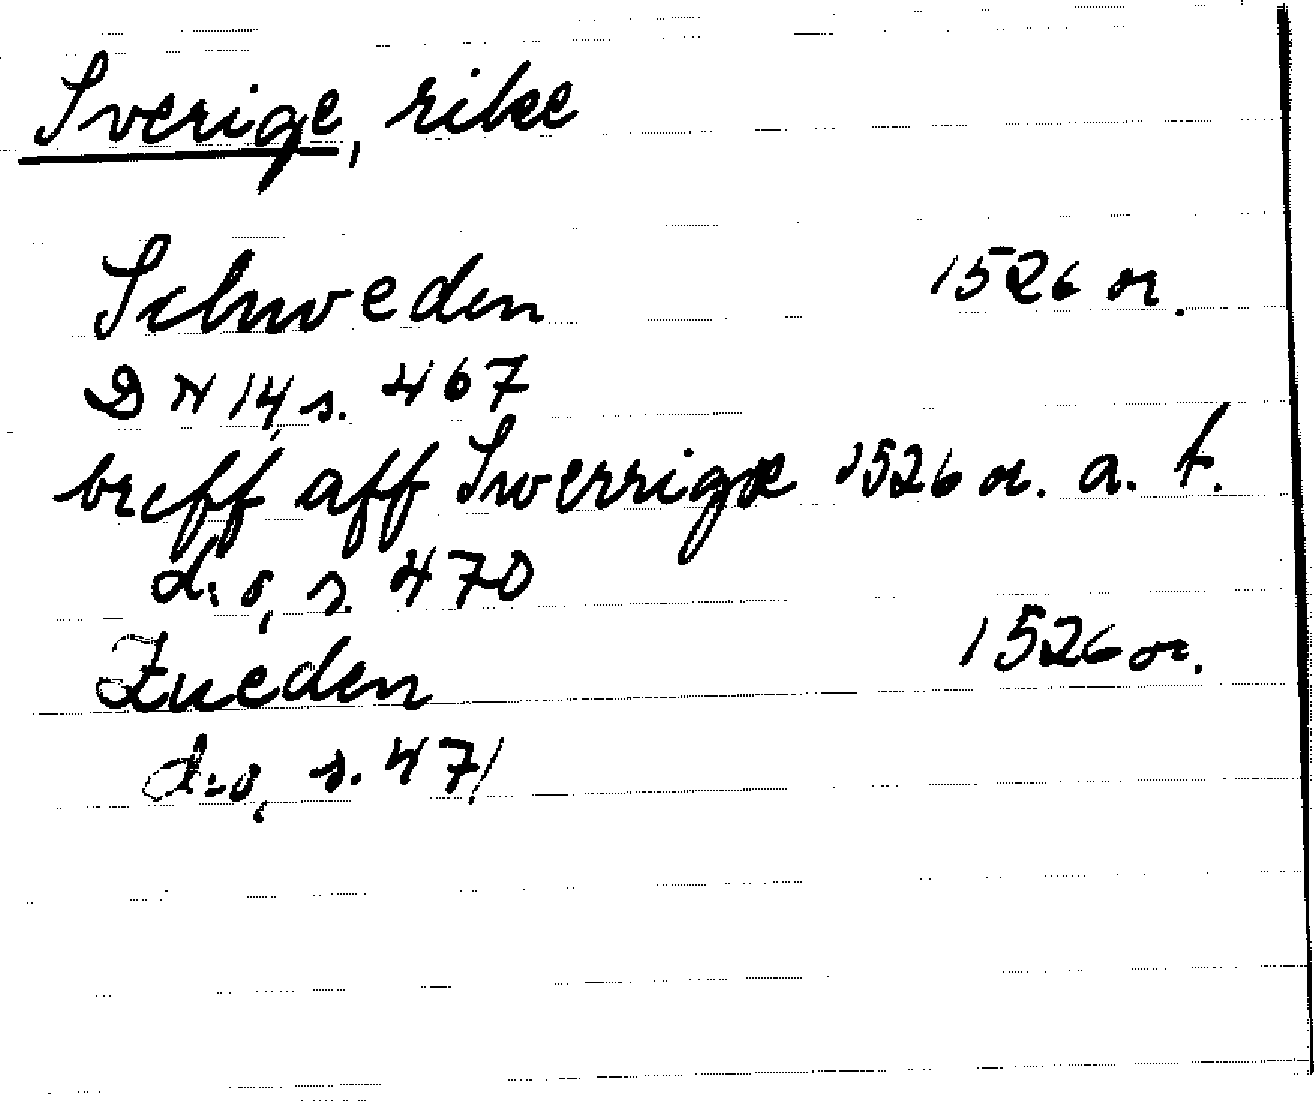 Sverige, rike
Schweden 1526 or.
DN 14, s. 467
breff aff Swerrigæ 1526 or. a. t.
d:o, s. 470
Zueden 1526 or.
d:o, s. 471